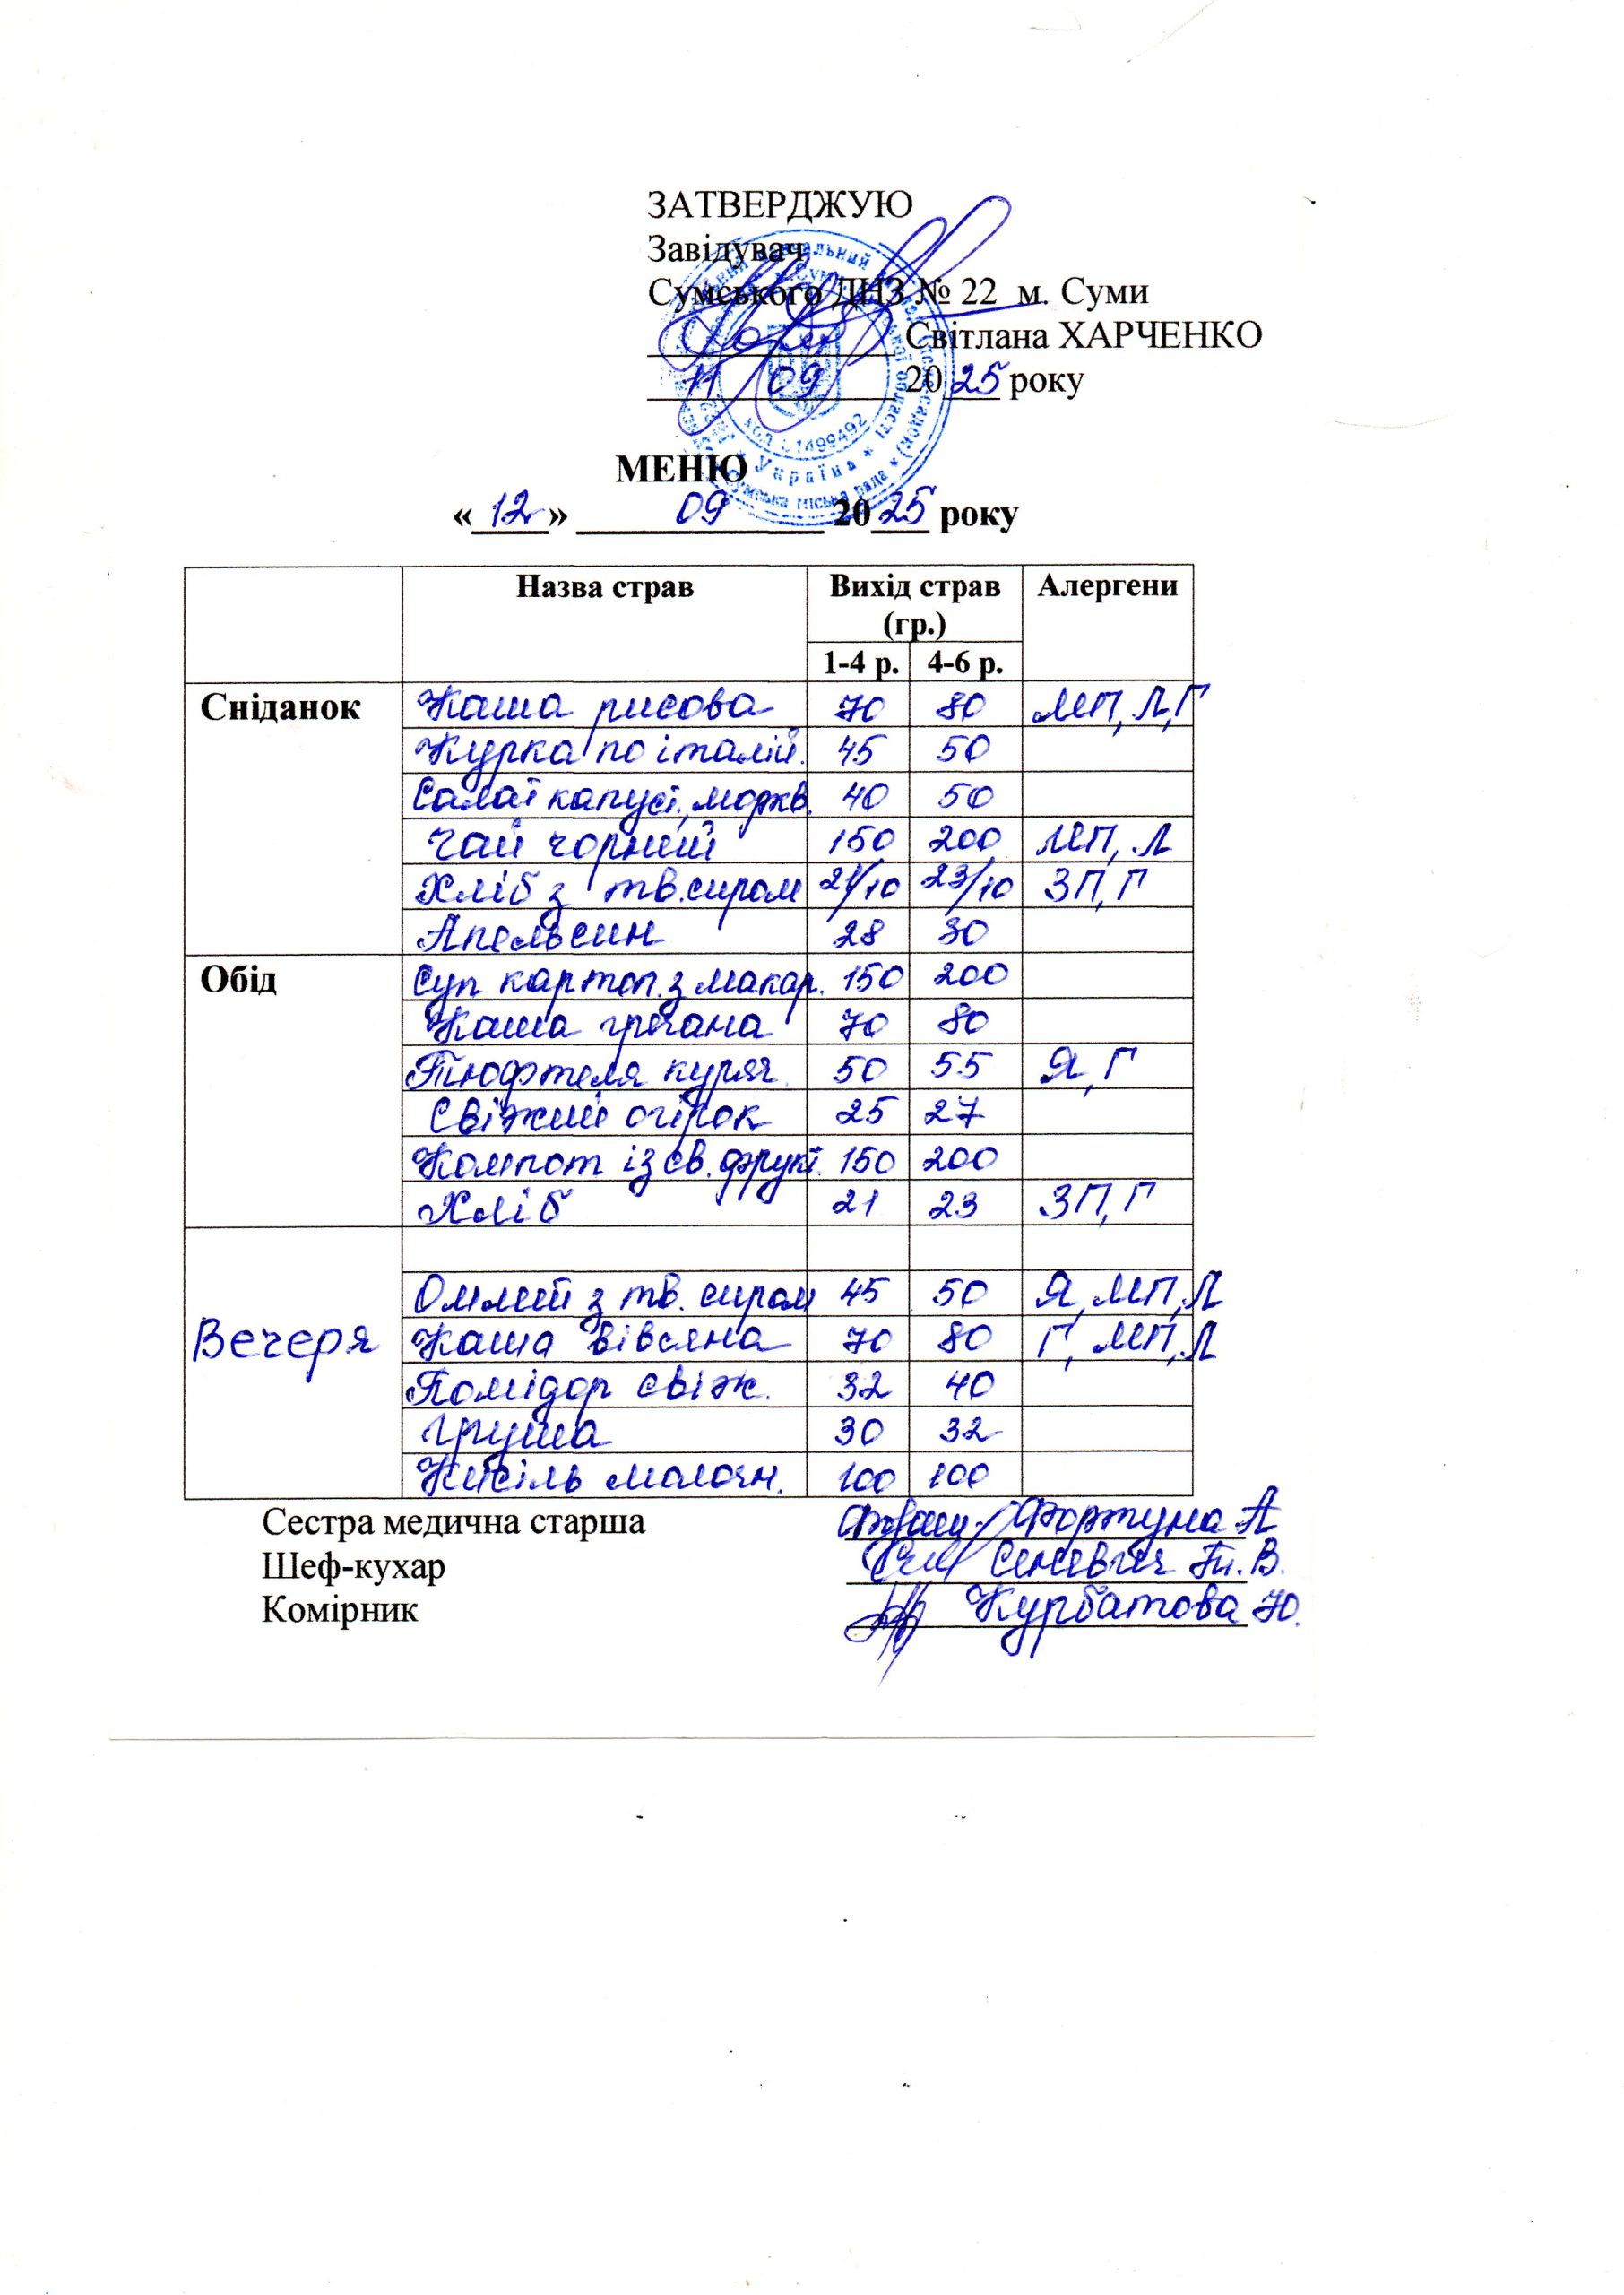 ЗАТВЕРДЖУЮ
Завідувач
Сумського ДНЗ № 22 м. Суми
Світлана ХАРЧЕНКО
11 09 2025 року
МЕНЮ
«12» 09 2025 року
Назва страв Вихід страв (гр.) Алергени
1-4 р. 4-6 р.
Сніданок Каша рисова 70 80 МП, Л, Г
Курка по італій. 45 50
Салат капуст, моркв. 40 50
Чай чорний 150 200 МП, Л
Хліб з тв. сиром 21/10 23/10 ЗП, Г
Апельсин 28 30
Обід Суп картоп. з макар. 150 200
Каша гречана 70 80
Тюфтеля куряч. 50 55 Я, Г
Свіжий огірок 25 27
Компот із св. фрукт. 150 200
Хліб 21 23 ЗП, Г
Омлет з тв. сиром 45 50 Я, МП, Л
Вечеря Каша вівсяна 70 80 Г, МП, Л
Помідор свіж. 32 40
Груша 30 32
Кисіль молочн. 100 100
Сестра медична старша Фортуна А
Шеф-кухар Сеневич Т. В.
Комірник Курбатова Ю.